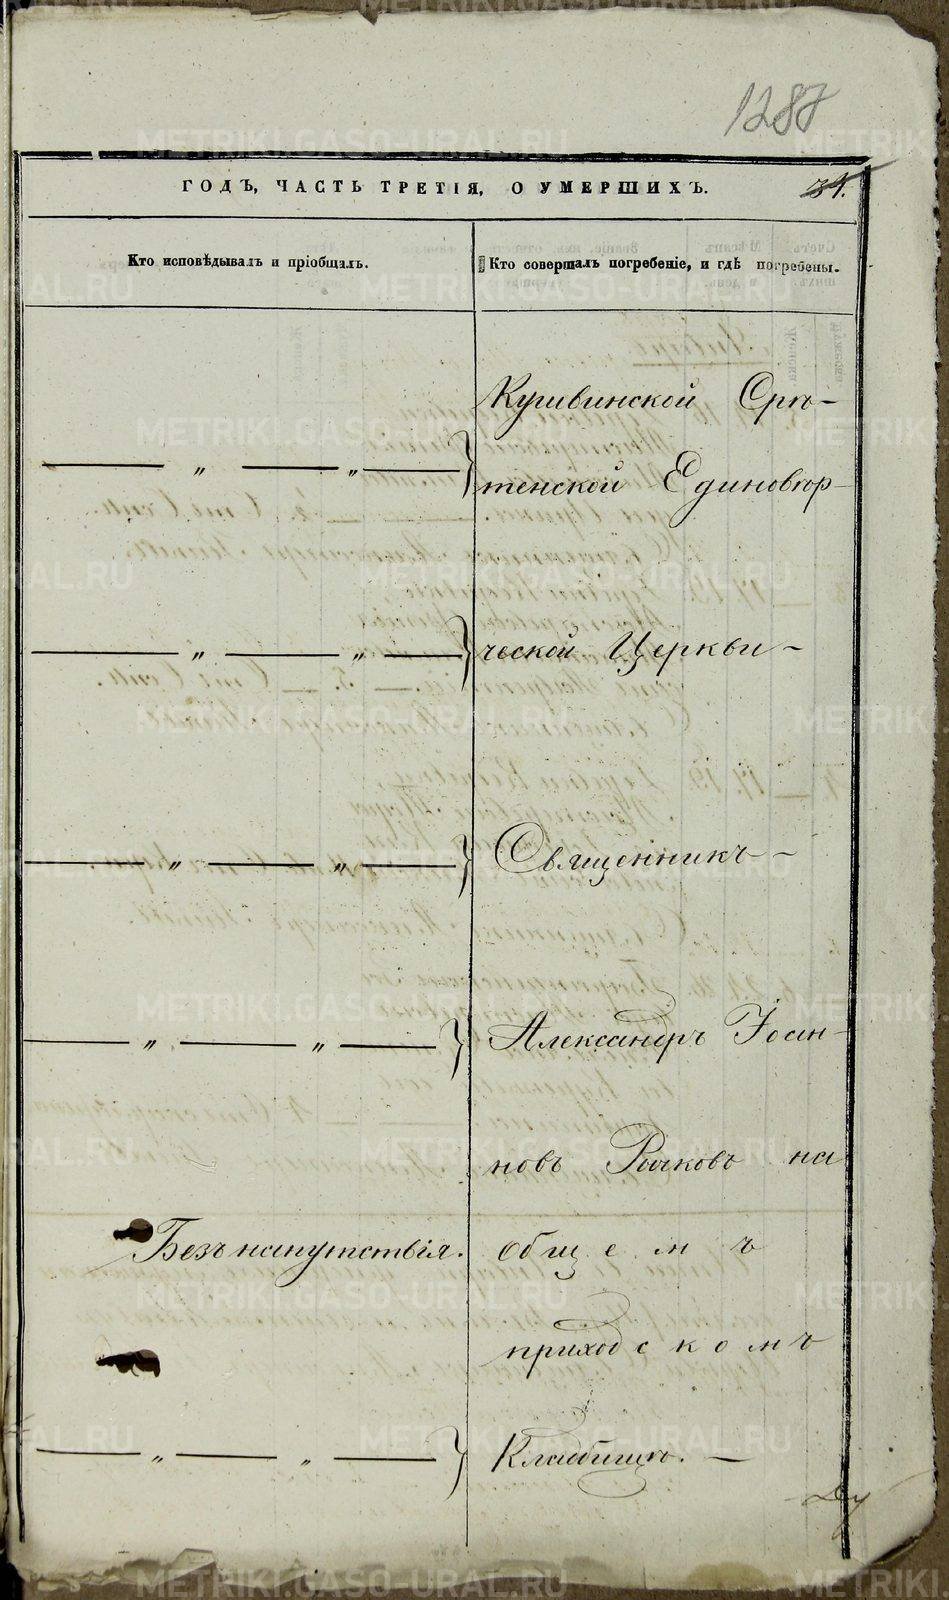 1287
ГОДЪ, ЧАСТЬ ТРЕТІЯ, О УМЕРШИХЪ.
31.
Кто исповѣдывалъ и пріобщалъ.
Кто совершалъ погребеніе, и гдѣ погребены.
Кушвинской Срѣ-
— „ — „ —
тенской Единовѣр-
— „ — „ —
ческой Церкви -
— „ — „ —
Священникъ -
— „ — „ —
Александръ Іоан-
новъ Рычковъ на
Безъ напутствія.
общемъ
приходскомъ
— „ — „ —
Кладбищѣ. —
METRIKI.GASO-URAL.RU